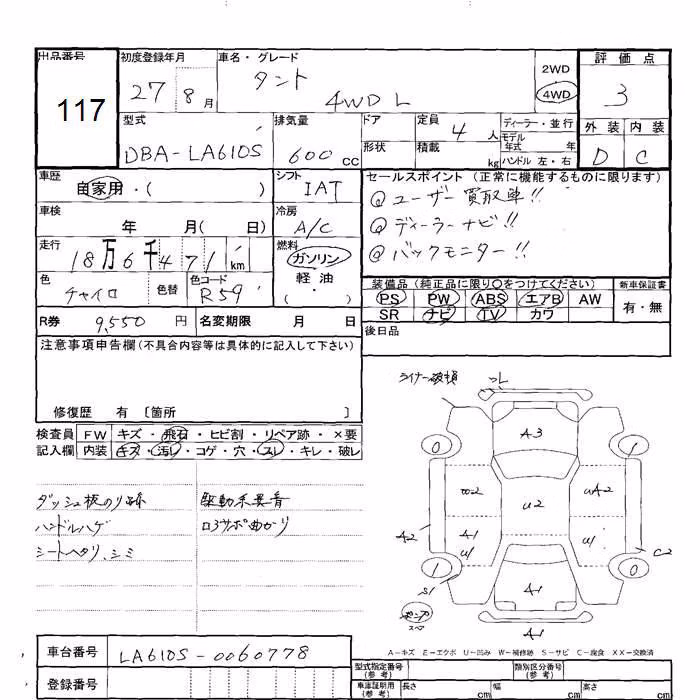 出品番号 初度登録年月 車名・グレード 評価点
117 27 8月 タント 4WD L 2WD 4WD 3
型式 排気量 ドア 定員 4人 ディーラー・並行 外装 内装
DBA-LA610S 600cc 形状 積載 kg モデル年式 年 ハンドル 左・右 D C
車歴 自家用・( ) シフト IAT セールスポイント (正常に機能するものに限ります)
@ ユーザー買取車!!
車検 年 月( 日) 冷房 A/C @ ディーラーナビ!!
走行 18万6千471km 燃料 ガソリン 軽油 ( ・ ) @ バックモニター!!
色 チャイロ 色替 色コード R59 装備品 (純正品に限り○をつけてください) 新車保証書
PS PW ABS エアB AW 有・無
SR ナビ TV カワ
R券 9,550円 名変期限 月 日 後日品
注意事項申告欄(不具合内容等は具体的に記入して下さい)
修復歴 有 〔箇所 〕
検査員 FW キズ・飛石・ヒビ割・リペア跡・×要
記入欄 内装 キズ・汚レ・コゲ・穴・スレ・キレ・破レ
ダッシュ板のり跡 駆動系異音
ハンドルハゲ ロアサポ曲がり
シートヘタリ、シミ
ライナー破損
A3
0 1
W2 U2 UA2
A2 A1 U1 U1 C2
1 0
S1 A1
スペア
A1
A-キズ E-エクボ U-凹み W-補修跡 S-サビ C-腐食 XX-交換済
車台番号 LA610S-0060778
登録番号
型式指定番号(参考) 類別区分番号(参考)
車庫証明用(参考) 長さ cm 幅 cm 高さ cm